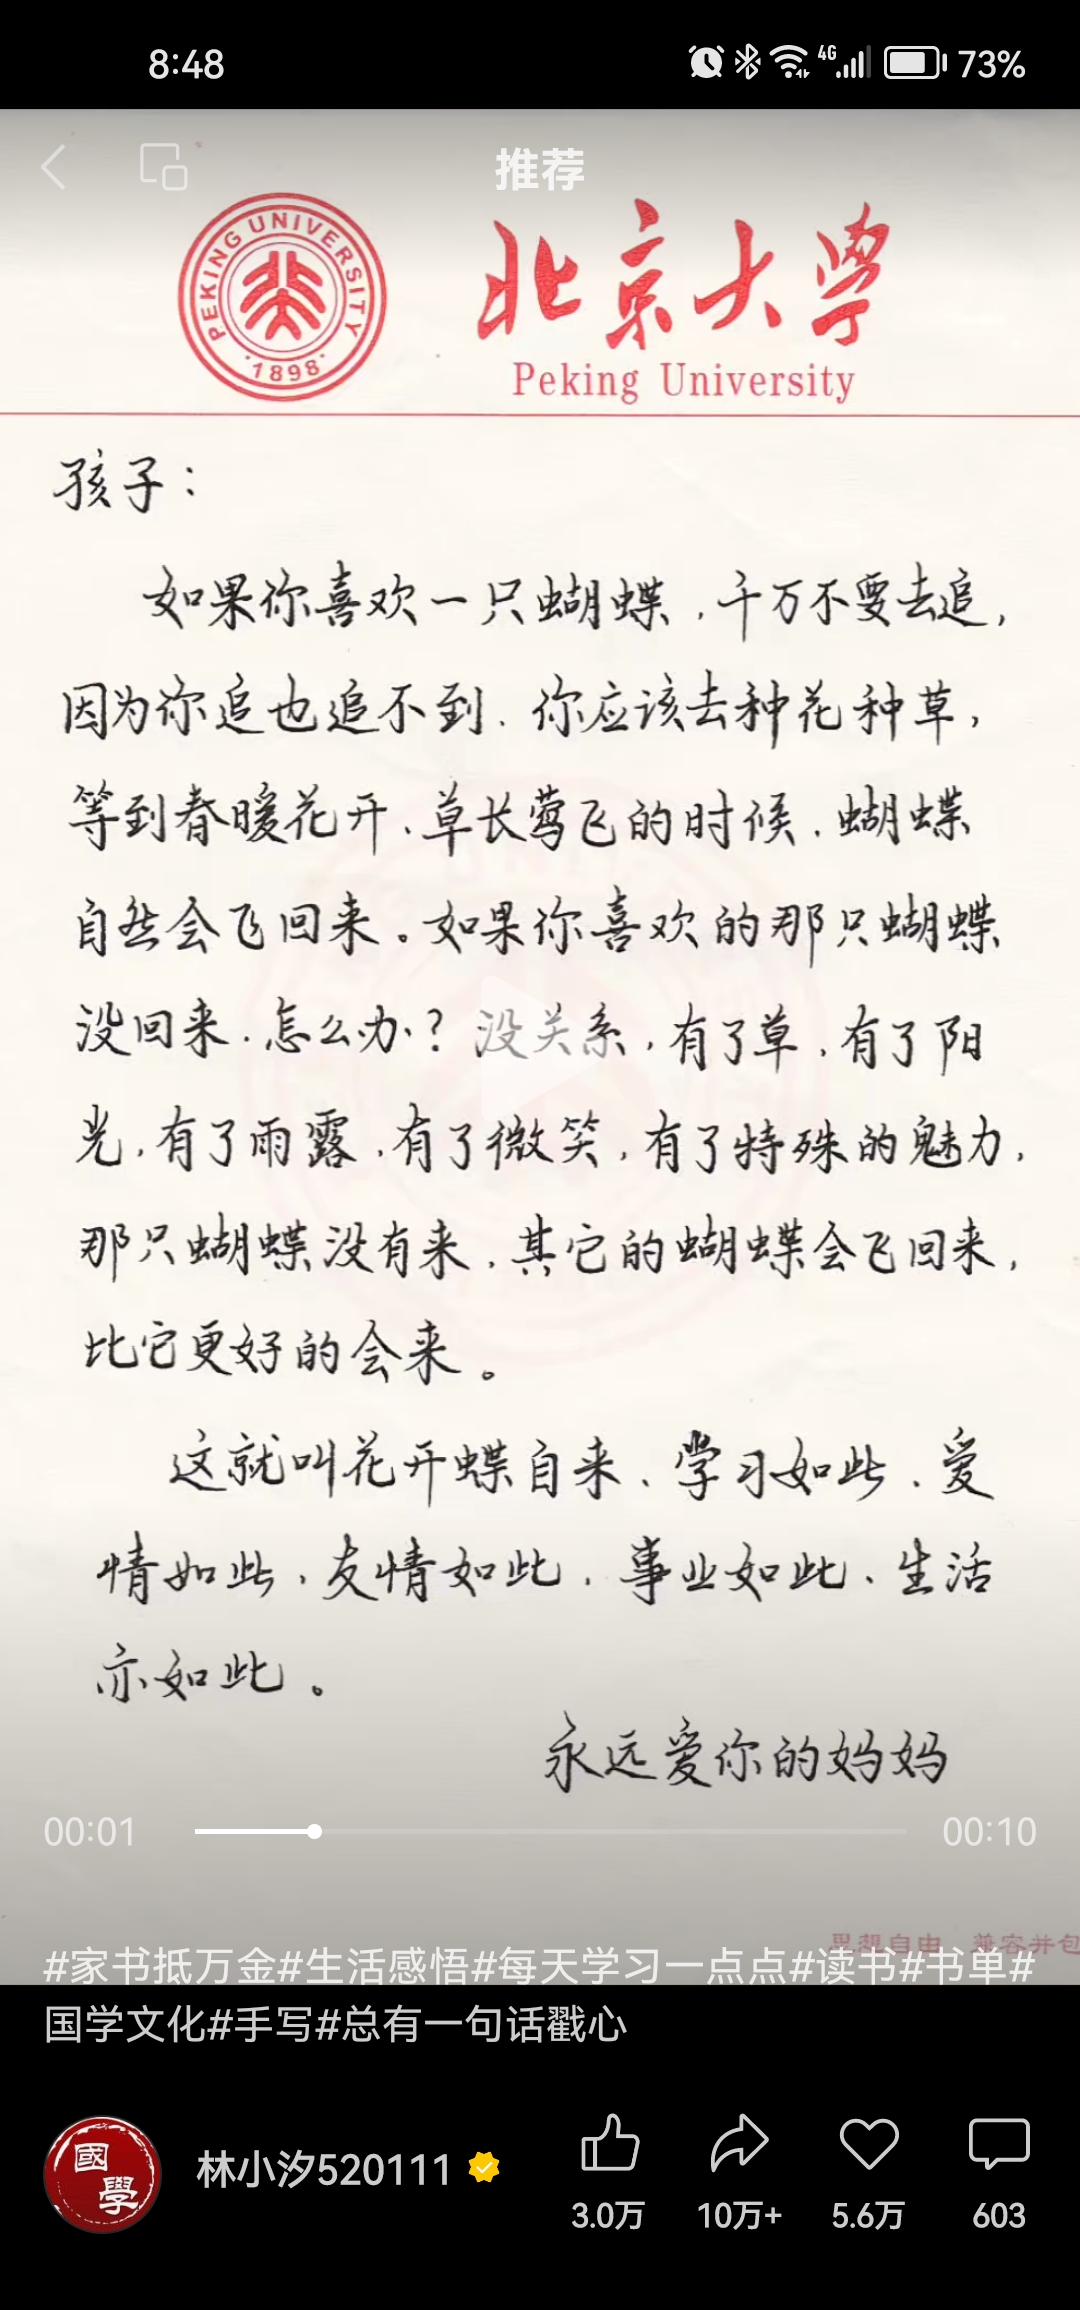 8:48
4G
73%
推荐
PEKING UNIVERSITY
1898
北京大学
Peking University
孩子：
如果你喜欢一只蝴蝶，千万不要去追，
因为你追也追不到．你应该去种花种草，
等到春暖花开、草长莺飞的时候．蝴蝶
自然会飞回来。如果你喜欢的那只蝴蝶
没回来．怎么办？没关系，有了草，有了阳
光，有了雨露，有了微笑，有了特殊的魅力，
那只蝴蝶没有来，其它的蝴蝶会飞回来，
比它更好的会来。
这就叫花开蝶自来、学习如此．爱
情如此，友情如此．事业如此、生活
亦如此。
永远爱你的妈妈
00:01
00:10
思想自由 兼容并包
#家书抵万金#生活感悟#每天学习一点点#读书#书单#
国学文化#手写#总有一句话戳心
國學
林小汐520111
3.0万
10万+
5.6万
603